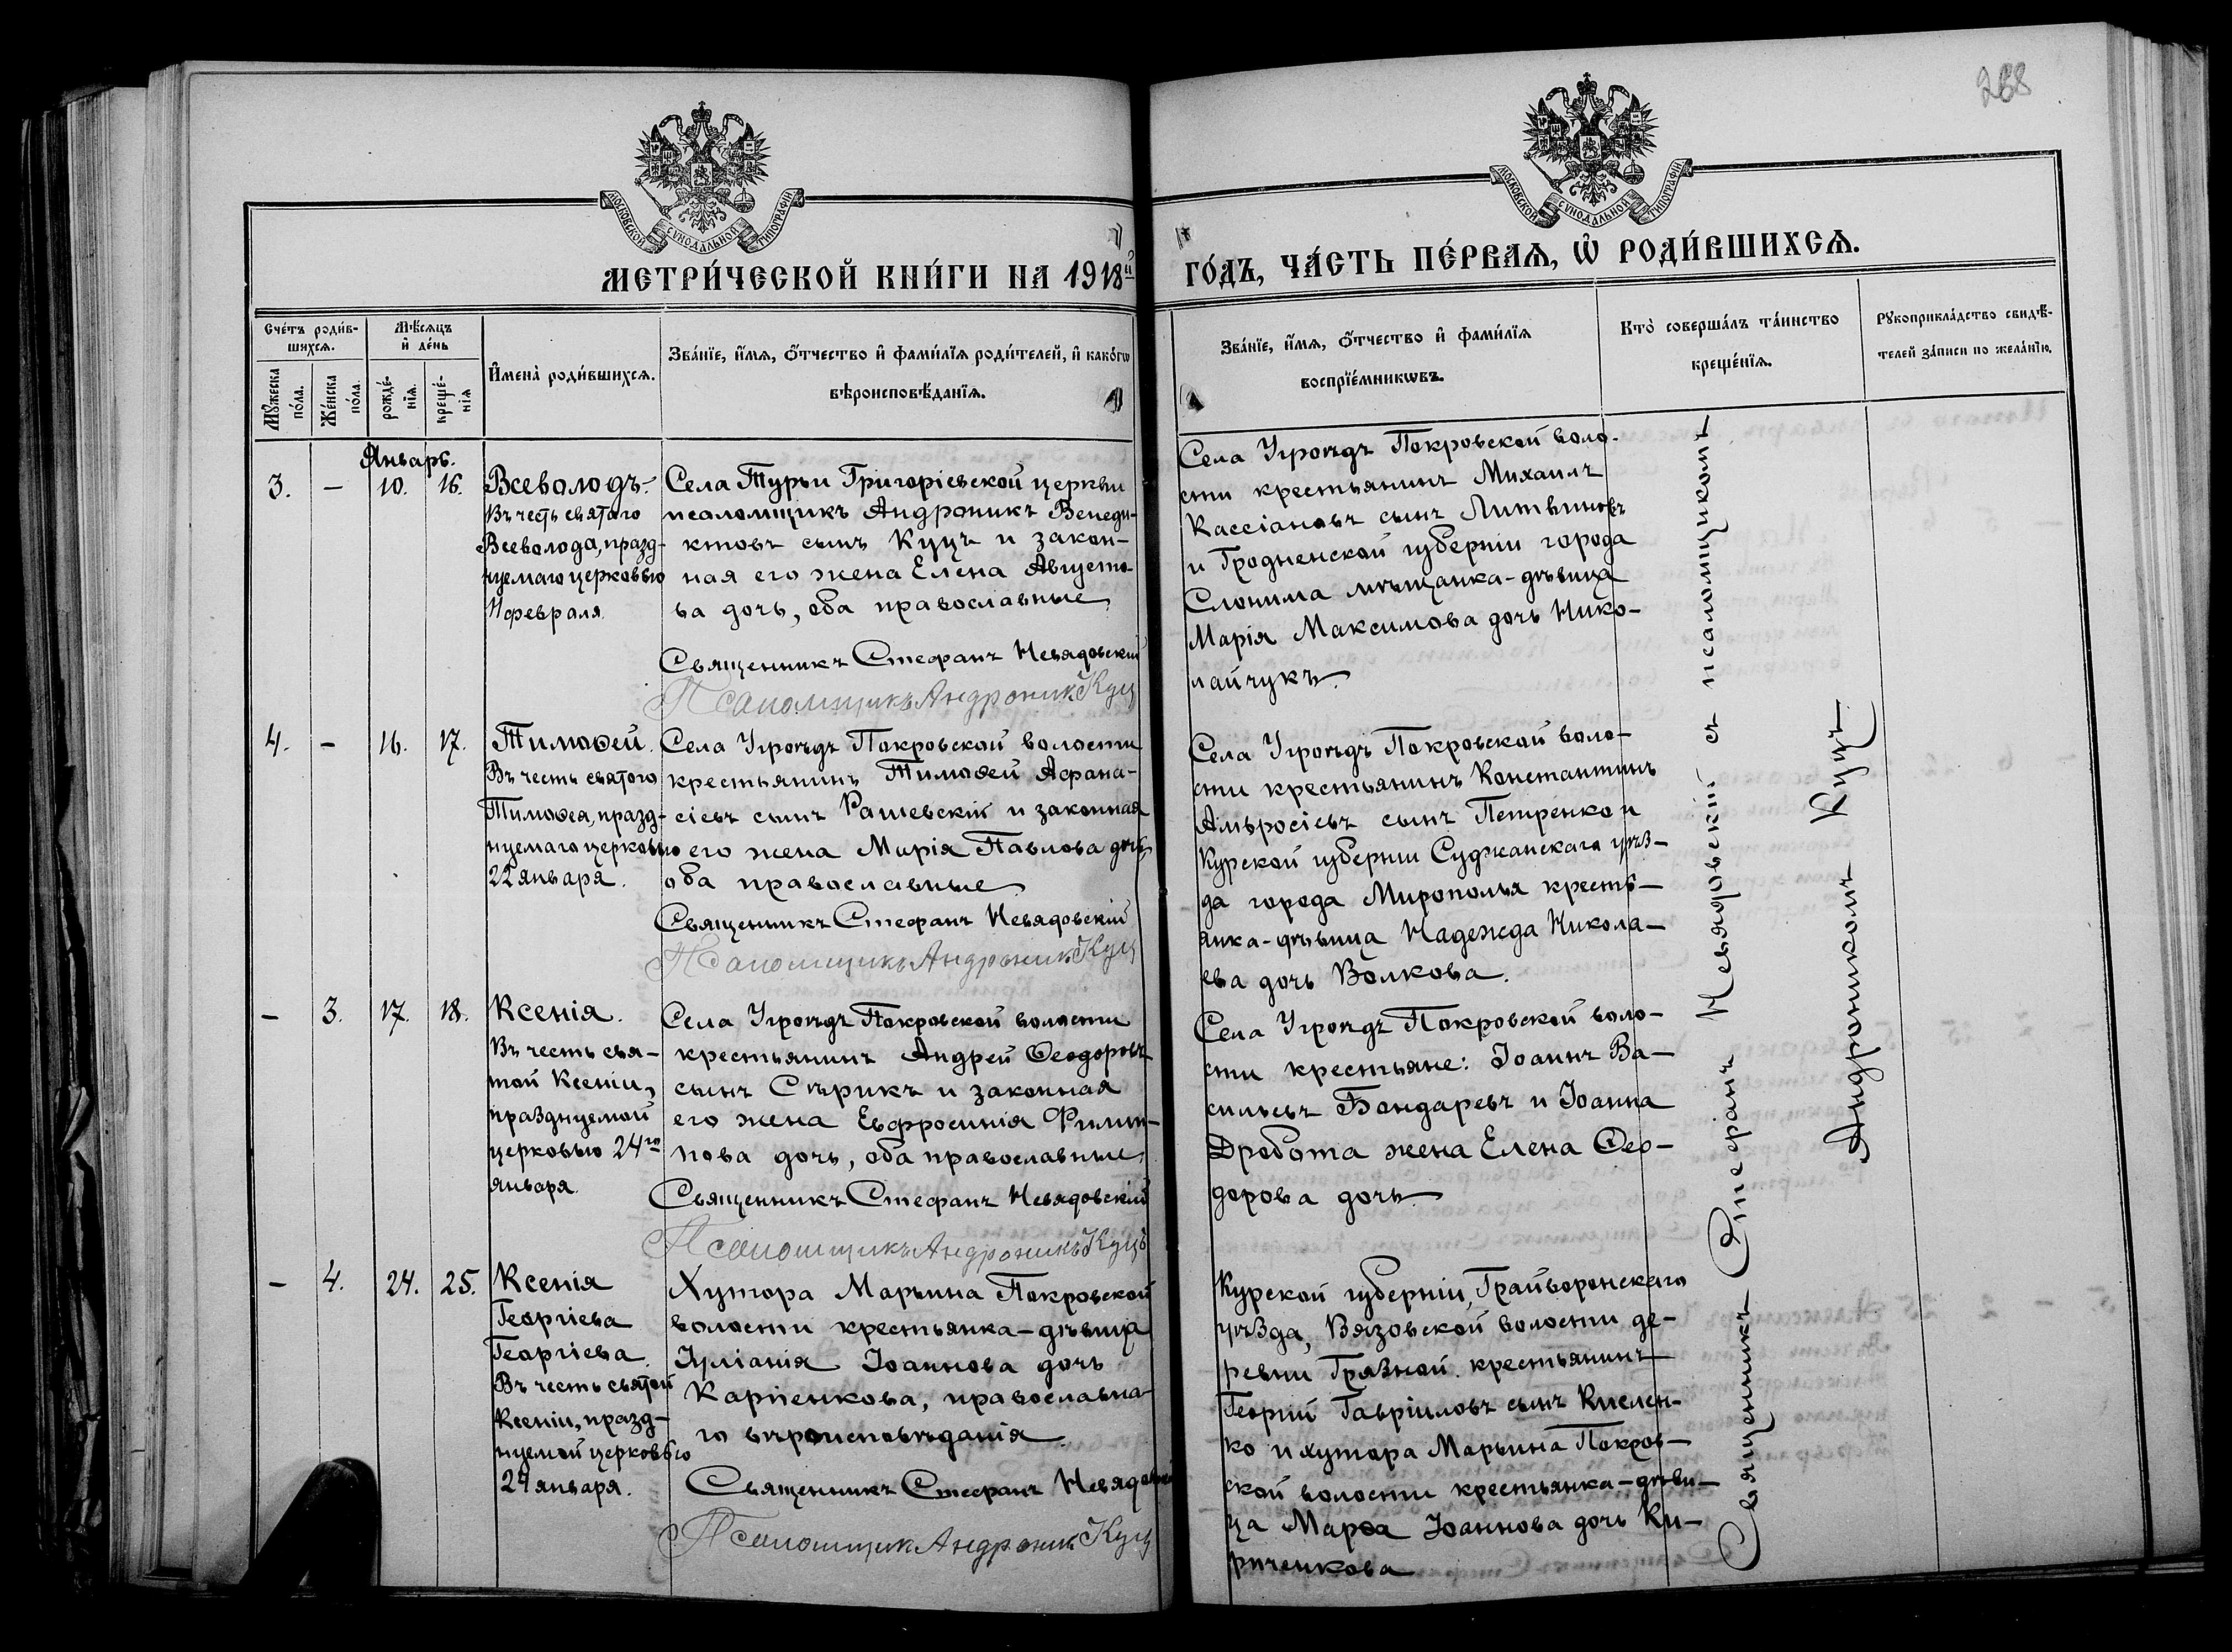 268
МОСКОВСКОЙ СѴНОДАЛЬНОЙ ТИПОГРАФІИ
МОСКОВСКОЙ СѴНОДАЛЬНОЙ ТИПОГРАФІИ
МЕТРИ́ЧЕСКОЙ КНИ́ГИ НА 1918й
ГО́ДЪ, ЧА́СТЬ ПЕ́РВАѦ, Ѡ҆ РОДИ́ВШИХСѦ.
Сче́тъ роди́в-
шихсѧ.
Мѣ́сѧцъ
и҆ де́нь
Мꙋ́жеска
по́ла.
Же́нска
по́ла.
рожде́-
нїѧ.
креще́-
нїѧ
И҆мена̀ роди́вшихсѧ.
Зва́нїе, и҆́мѧ, ѻ҆́тчество и҆ фами́лїѧ роди́телей, и҆ како́гѡ
вѣроисповѣ́данїѧ.
Зва́нїе, и҆́мѧ, ѻ҆́тчество и҆ фами́лїѧ
воспрїе́мникѡвъ.
Кто̀ соверша́лъ та́инство
креще́нїѧ.
Рꙋкоприкла́дство свидѣ́-
телей за́писи по жела́нїю.
Январь.
3. – 10. 16.
Всеволодъ.
Въ честь святаго
Всеволода, празд-
нуемаго церковью
11 февраля.
Села Турьи Григоріевской церкви
псаломщикъ Андроникъ Венеди-
ктовъ сынъ Куцъ и закон-
ная его жена Елена Августо-
ва дочь, оба православные
Священникъ Стефанъ Невядовскій
Псаломщикъ Андроникъ Куцъ
Села Угроѣдъ Покровской воло-
сти крестьянинъ Михаилъ
Кассіановъ сынъ Литвиновъ
и Гродненской губерніи города
Слонима мѣщанка-дѣвица
Марія Максимова дочь Нико-
лайчукъ.
4. – 16. 17.
Тимоѳей.
Въ честь святого
Тимоѳея, празд-
нуемаго церковью
22 января.
Села Угроѣдъ Покровской волости
крестьянинъ Тимоѳей Афана-
сіевъ сынъ Рашевскій и законная
его жена Марія Павлова дочь,
оба православные
Священникъ Стефанъ Невядовскій
Псаломщикъ Андроникъ Куцъ
Села Угроѣдъ Покровской воло-
сти крестьянинъ Константинъ
Амвросіевъ сынъ Петренко и
Курской губерніи Суджанскаго уѣз-
да города Мирополья кресть-
янка-дѣвица Надежда Никола-
ева дочь Волкова.
– 3. 17. 18.
Ксенія.
Въ честь свя-
той Ксеніи,
празднуемой
церковью 24го
января.
Села Угроѣдъ Покровской волости
крестьянинъ Андрей Ѳеодоровъ
сынъ Сѣрикъ и законная
его жена Евфросинія Филип-
пова дочь, оба православные
Священникъ Стефанъ Невядовскій
Псаломщикъ Андроникъ Куцъ
Села Угроѣдъ Покровской воло-
сти крестьяне: Іоаннъ Ва-
сильевъ Бондаревъ и Іоанна
Дробота жена Елена Ѳео-
дорова дочь
– 4. 24. 25.
Ксенія
Георгіева
Георгіева.
Въ честь святой
Ксеніи, празд-
нуемой церковью
24 января.
Хутора Марьина Покровской
волости крестьянка-дѣвица
Іуліанія Іоаннова дочь
Карпенкова, православна-
го вѣроисповѣданія
Священникъ Стефанъ Невядовскій
Псаломщикъ Андроникъ Куцъ
Курской губерніи, Грайворонскаго
уѣзда, Вязовской волости де-
ревни Грязной крестьянинъ
Георгій Гавріиловъ сынъ Кислен-
ко и хутора Марьина Покров-
ской волости крестьянка-дѣви-
ца Марѳа Іоаннова дочь Ки-
риченкова
Священникъ Стефанъ Невядовскій съ псаломщикомъ
Андроникомъ Куцъ